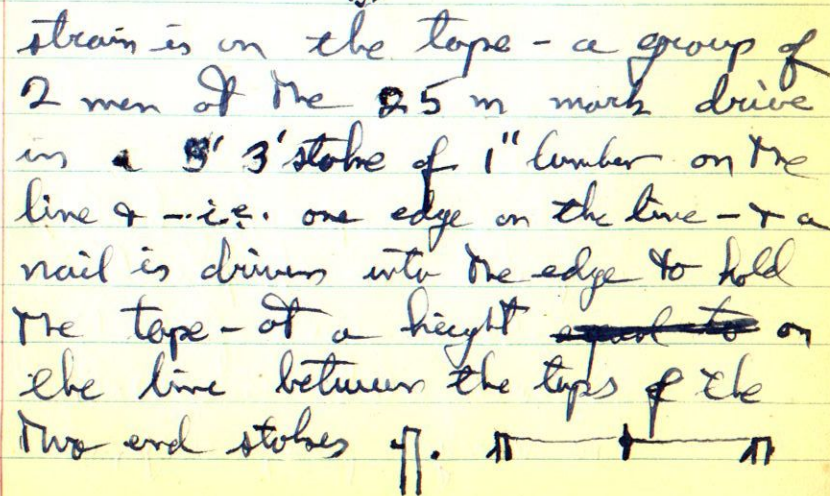 strain is on the tape - a group of
2 men at the 25 m mark drive
in a 3' stake of 1" lumber on the
line & - i.e. one edge on the line - & a
nail is driven into the edge to hold
the tape - at a height equal to on
the line between the tops of the
two end stakes